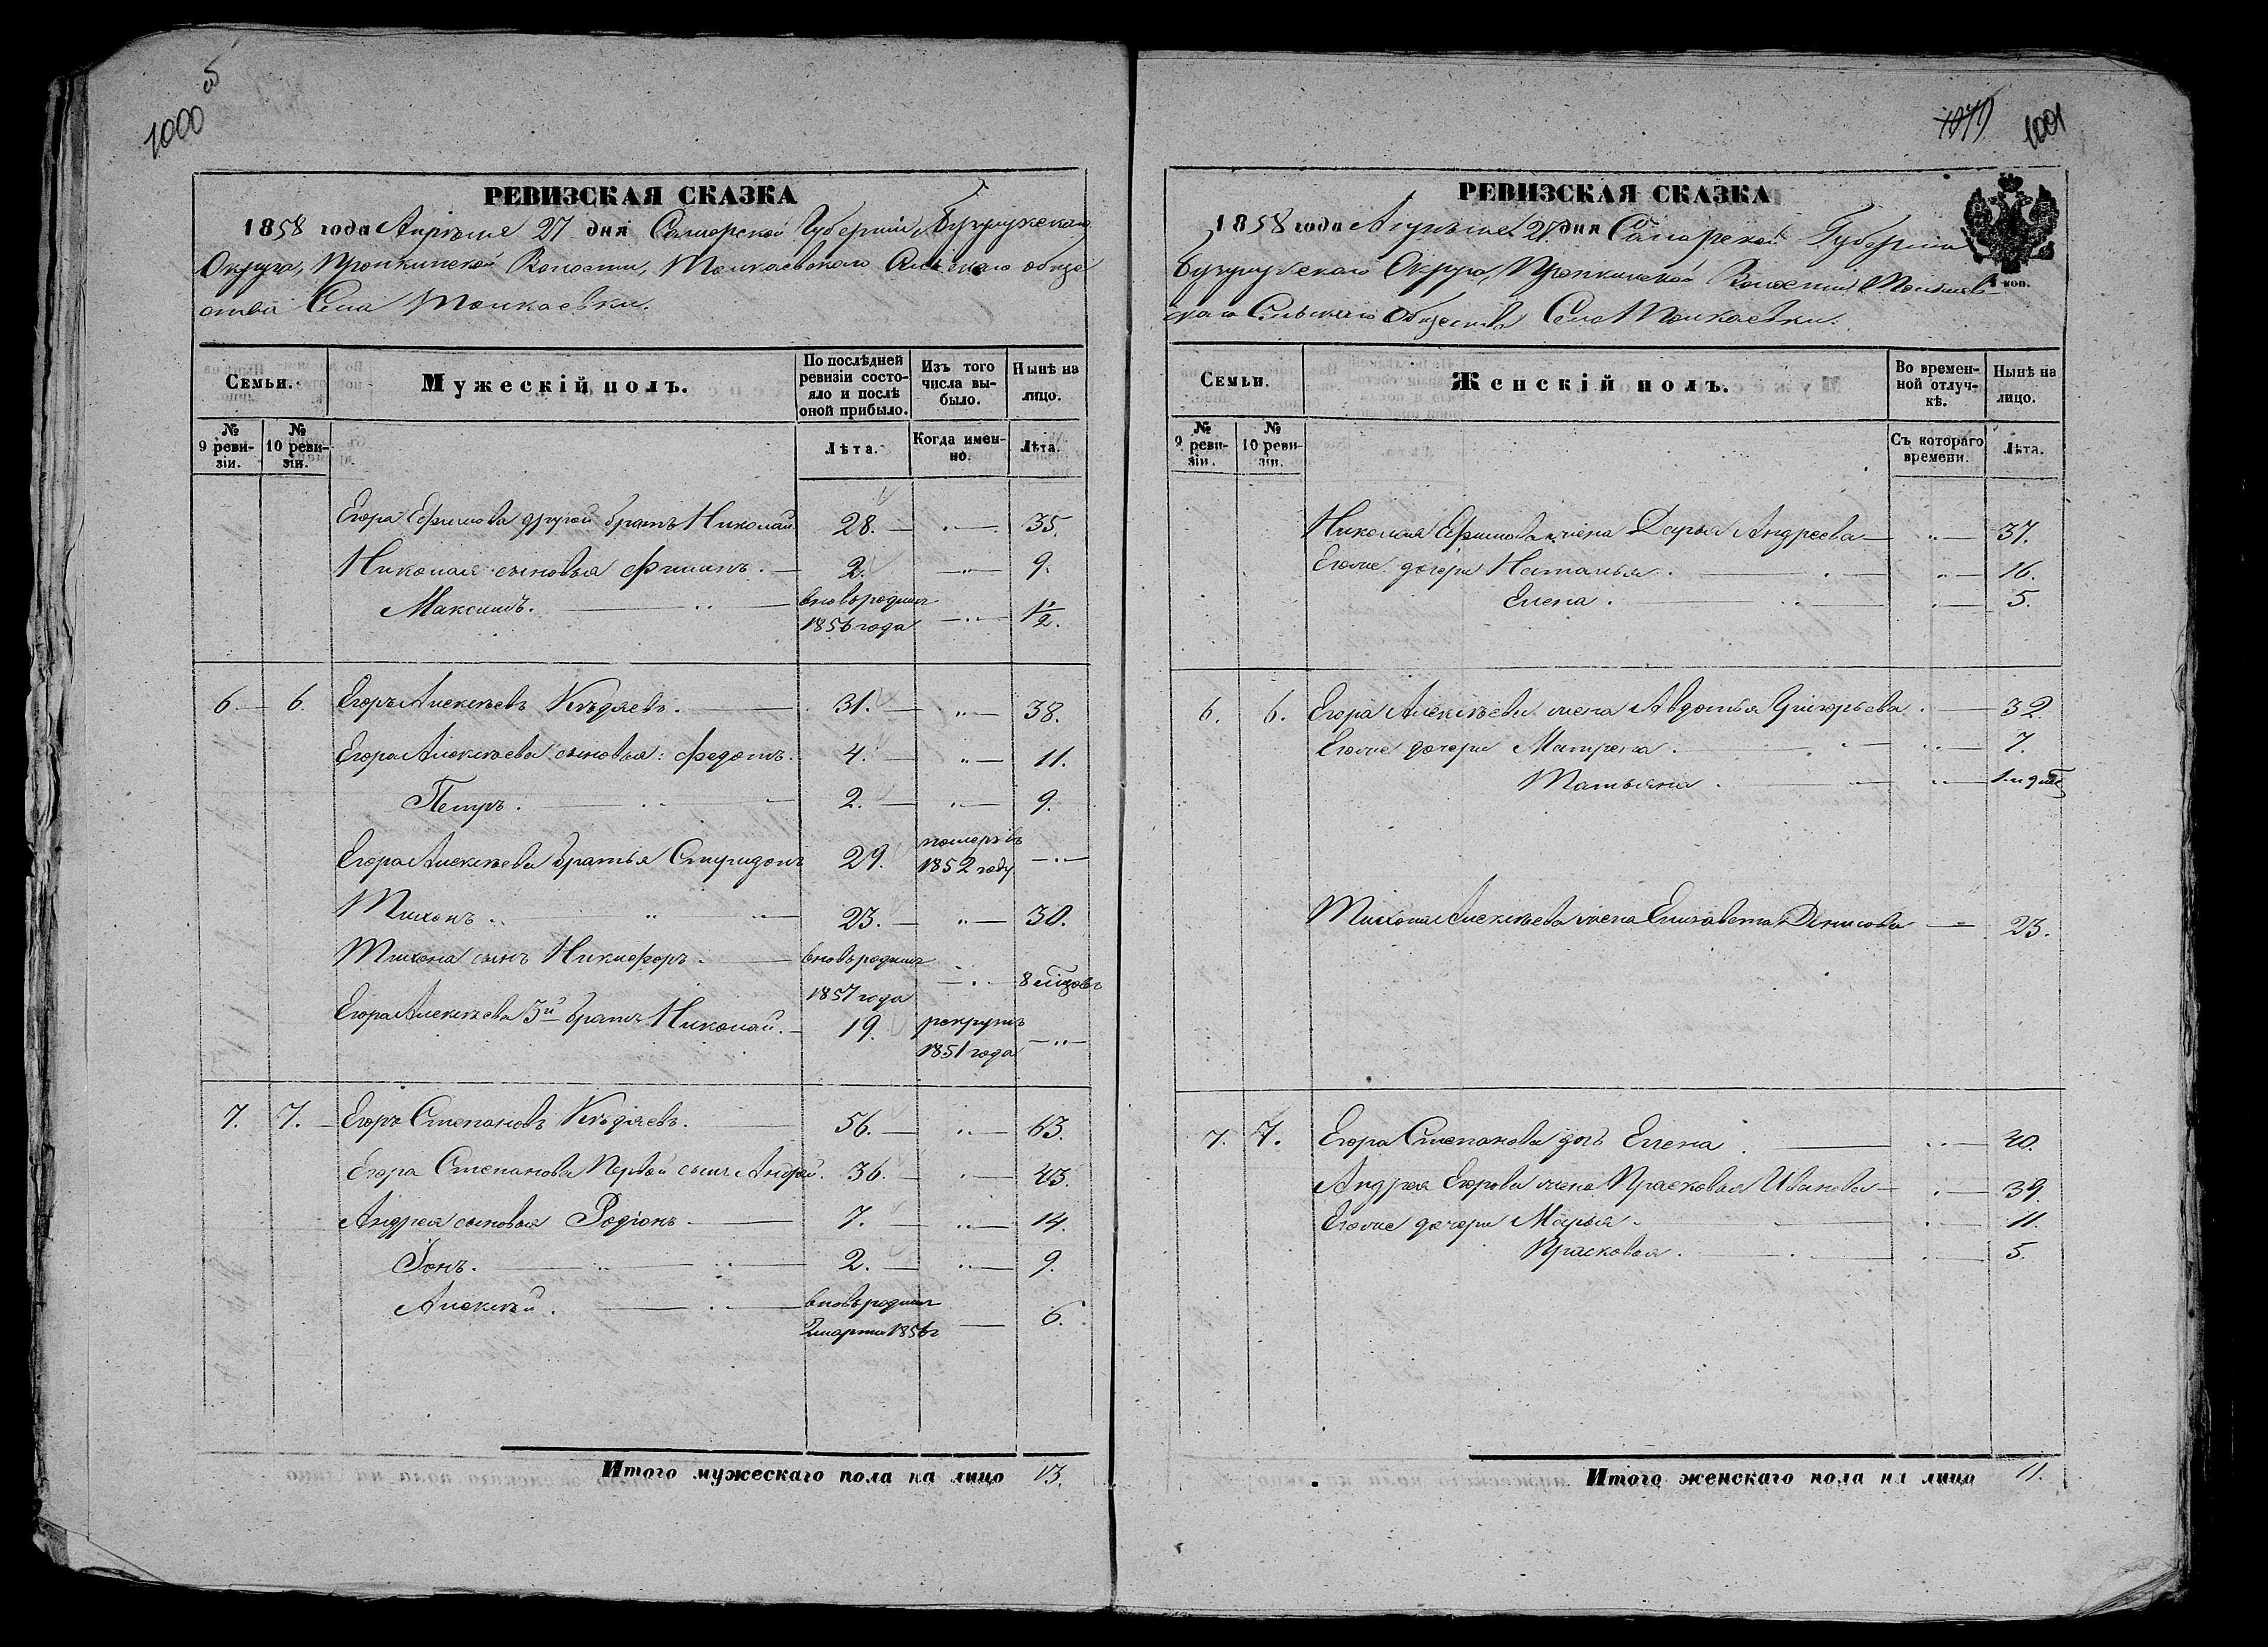 1000 об
РЕВИЗСКАЯ СКАЗКА
1858 года Апреля 27 дня Самарской Губерніи, Бузулукскаго
Округа, Пронкинской Волости, Толкаевскаго Сельскаго обще
ства Села Толкаевки.
Семьи.
Мужескій полъ.
По послѣдней ревизіи состояло и послѣ оной прибыло.
Изъ того числа выбыло.
Нынѣ на лицо.
№ 9 ревизіи.
№ 10 ревизіи.
Лѣта.
Когда именно.
Лѣта.
Егора Ефимова другой братъ Николай 28. 35.
Николая сыновья Филипъ. 2. 9.
Максимъ. вновь родил 1856 года 1 1/2.
6 6. Егоръ Алексѣевъ Кѣдяевъ. 31. 38.
Егора Алексѣева сыновья: Федотъ. 4. 11.
Петръ. 2. 9.
Егора Алексѣева братья Спиридонъ 29. померъ въ 1852 году
Тихонъ. 23. 30.
Тихона сынъ Никифоръ. вновь родил 1857 года 8 мѣсцовъ
Егора Алексѣева 3й братъ Николай. 19. рекрутъ 1851 года
7. 7. Егоръ Степановъ Кѣдяевъ. 56. 63.
Егора Степанова Первой сынъ Андрей. 36. 43.
Андрея сыновья Родіонъ 7. 14.
Іонъ. 2. 9.
Алексѣй. вновь родил марта 6.
Итого мужескаго пола на лицо 13.
1001
РЕВИЗСКАЯ СКАЗКА
1858 года Апреля 27 дня Самарской Губерніи
Бузулукскаго Округа, Пронкинской Волости, Толкаев
скаго Сельскаго Общества Села Толкаевки.
коп.
Семьи.
Женскій полъ.
Во временной отлучкѣ.
Нынѣ на лицо.
№ 9 ревизіи.
№ 10 ревизіи.
Съ котораго времени.
Лѣта.
Николая Ефимова жена Дарья Андреева 37.
Егоже дочери Наталья. 16.
Елена. 5.
6. 6. Егора Алексѣева жена Авдотья Григорьева. 32.
Егоже дочери Матрена. 7.
Татьяна.
Тихона Алексѣева жена Елизавета Денисова 23.
7. 7. Егора Степанова дочь Елена. 20.
Андрея Егорова жена Прасковья Иванова 39.
Егоже дочери Марья. 11.
Прасковья. 5.
Итого женскаго пола на лицо 11.